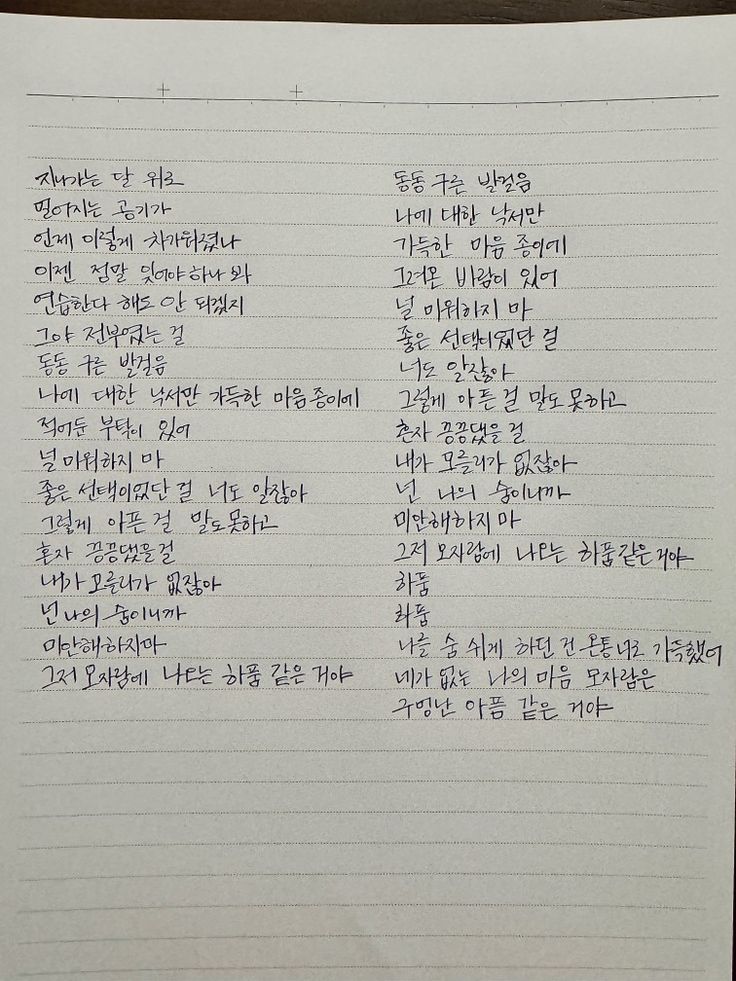 지나가는 달 위로
멀어지는 공기가
언제 이렇게 차가워졌나
이젠 정말 잊어야 하나 봐
연습한다 해도 안 되겠지
그야 전부였는 걸
동동 구른 발걸음
나에 대한 낙서만 가득한 마음 종이에
적어둔 부탁이 있어
널 미워하지 마
좋은 선택이었단 걸 너도 알잖아
그렇게 아픈 걸 말도 못하고
혼자 끙끙댔을 걸
내가 모를리가 없잖아
넌 나의 숨이니까
미안해하지마
그저 모자람에 나오는 하품 같은 거야
동동 구른 발걸음
나에 대한 낙서만
가득한 마음 종이에
그려온 바람이 있어
널 미워하지 마
좋은 선택이었단 걸
너도 알잖아
그렇게 아픈 걸 말도 못하고
혼자 끙끙댔을 걸
내가 모를리가 없잖아
넌 나의 숨이니까
미안해하지 마
그저 모자람에 나오는 하품같은 거야
하품
하품
나를 숨 쉬게 하던 건 온통 너로 가득했어
네가 없는 나의 마음 모자람은
구멍난 아픔 같은 거야